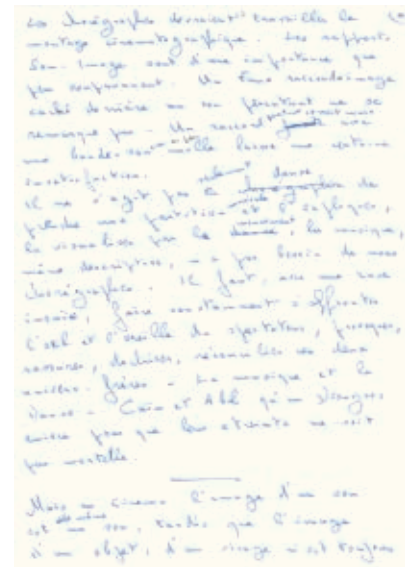 Les chorégraphes devraient travailler le
montage cinématographique. Les rapports
Son-Image sont d'une importance que
peu soupçonnent. Un faux raccord-image
caché derrière un son percutant ne se
remarque pas. Un raccord
une bande-son molle laisse une certaine
insatisfaction.
Il ne s'agit pas seulement la danse de
prendre une partition et l'expliquer,
la visualiser par le mouvement, la musique,
même descriptive, n'a pas besoin de nous
chorégraphes. Il faut, avec une
faire constamment s'affronter
l'œil et l'oreille du spectateur, provoquer,
rassurer, déchirer, réconcilier ces deux
frères. La musique et la
Danse. Caïn et Abel qu'un
pour que leur étreinte ne soit
pas mortelle.
Mais au cinéma l'image d'un son
est lui-même un son, tandis que l'image
d'un objet, d'un visage n'est toujours